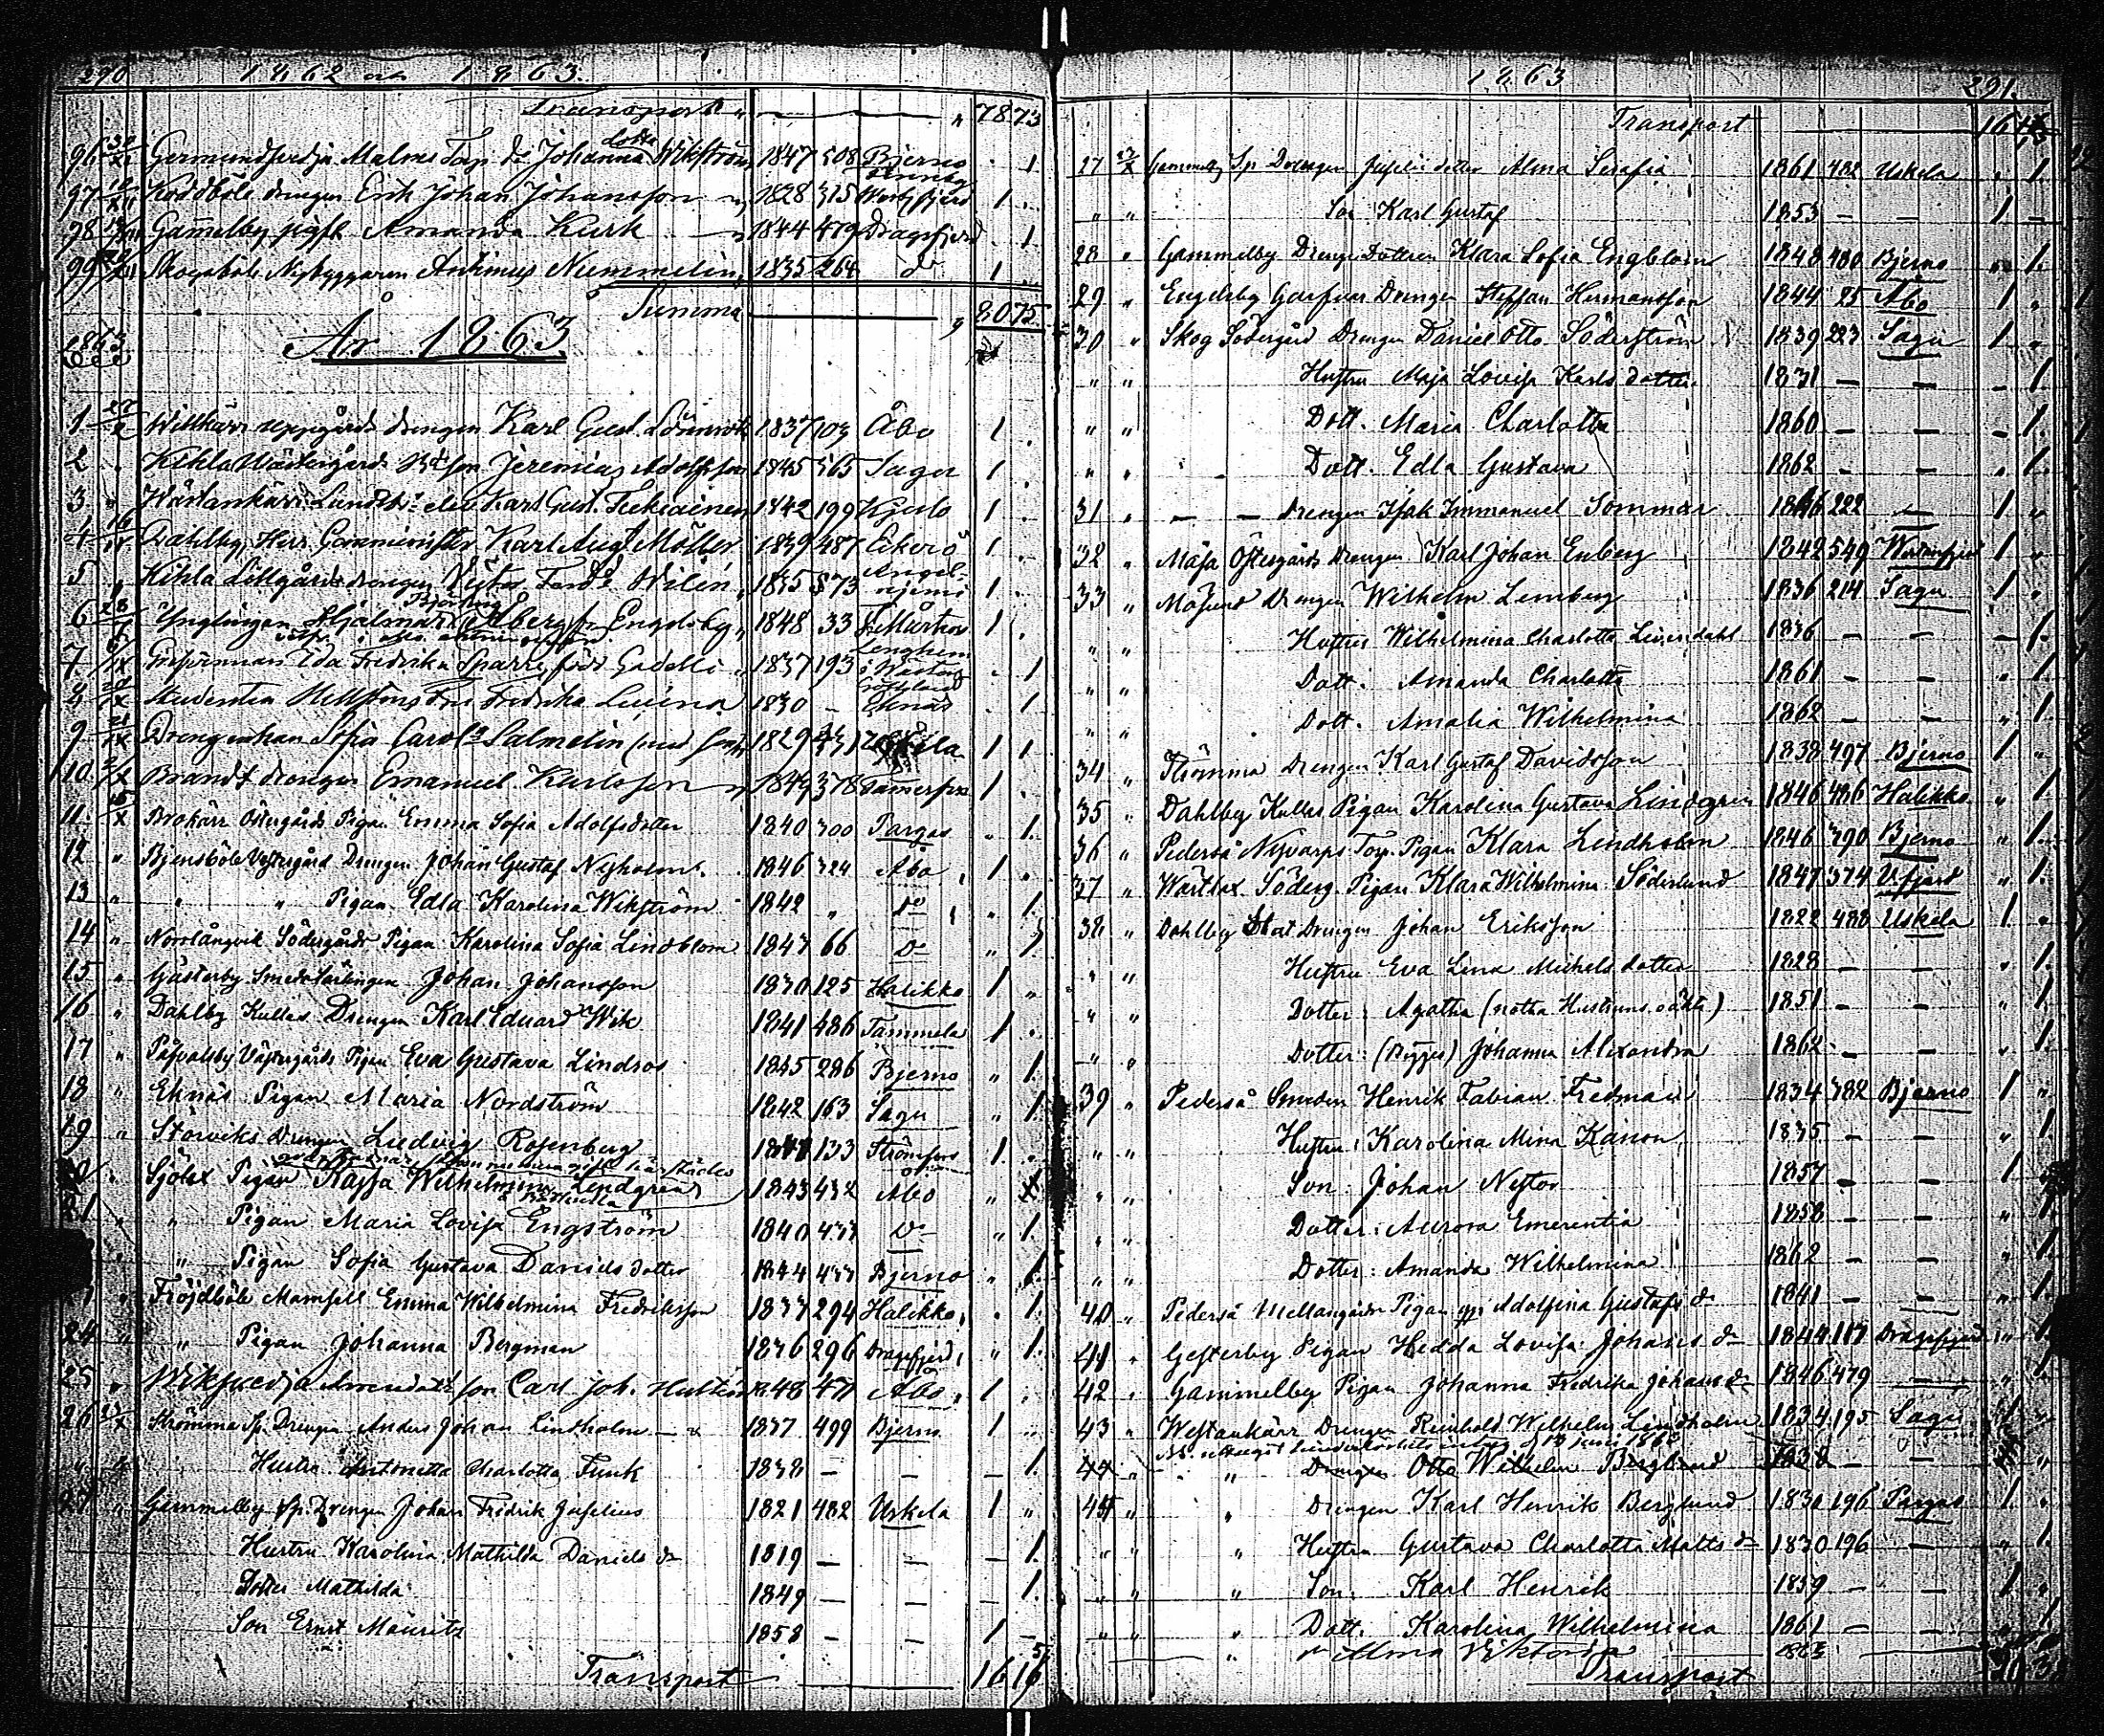 290 1862 och 1863.
Transport " 78 73
96 Germundsvedja Malms Torp dr Johanna Lotta Wikström 1847 508 Bjerno 1
97 Koddböle drengen Erik Johan Johansson 1828 315 1
98 Gammelby pigan Amanda Kurk 1844 479 Dragsfjerd 1
99 Skogsböle Nybyggaren Antinus Nummelin 1835 264 do 1
Summa 80 75
År 1863
1863
1 Wittkärr uppgårds drengen Karl Gust. Lönnrot 1837 103 Åbo 1
2 Kihla Wästergårds son Jeremias Adolfsson 1845 565 Sagu 1
3 Wästankärr elev Karl Gust. 1842 199 Kjulo 1
4 Dahlby, Herr Karl Aug. Möller 1839 487 Eckerö 1
5 Kihla Lillgårds drengen Victor Ferd. Wilén 1835 573 Angelniemi 1
6 Ynglingen Hjalmar Åberg fr. Engelsby 1848 33 St Mårtens 1
7 Ida Fredrika Sparre, född Gadelli 1837 193 1
8 Fredrika 1830 – Ekenäs 1
9 Drengenkan Sofia Carol. Salmelin 1829 Uskela 1 1
10 Brandt drengen Emanuel Karlsson 1843 378 Tamerfors 1
11 Brokärr Östergårds Pigan Emma Sofia Adolfsdotter 1840 300 Pargas " 1
12 " Bjensböle Västergård Drengen Johan Gustaf Nyholm 1846 324 Åbo 1
13 " " " Pigan Edla Karolina Wikström 1842 " Do " 1
14 " Norrlångvik Södergårds Pigan Karolina Sofia Lindblom 1847 66 Do " 1
15 " Gästerby Smedslärlingen Johan Johansson 1830 125 Halikko 1 "
16 " Dahlby Kullas Drengen Karl Eduard Wik 1841 486 Tammela 1
17 " Påvalsby Västergårds Pigan Eva Gustava Lindros 1845 286 Bjerno " 1
18 " Eknäs Pigan Maria Nordström 1842 163 Sagu " 1
19 " Storviks Drengen Ludvig Rosenberg 1841 133 Strömfors 1
20 Sjölax Pigan Kajsa Wilhelmina Lindgren 1843 432 Åbo "
21 " " Pigan Maria Lovisa Engström 1840 433 Do " 1
" " Pigan Sofia Gustava Danielsdotter 1844 433 Bjerno " 1
" Fröjdböle Mamsell Emma Wilhelmina Fredriksson 1837 294 Halikko 1
24 " " Pigan Johanna Bergman 1836 296 Dragsfjerd " 1
25 " Wiksvedja son Carl Joh. Hulten 1848 47 Åbo 1
26 Strömma Sp. Drengen Anders Johan Lindholm 1837 499 Bjerno 1
" " Hustru Antonetta Charlotta Funk 1838 – – – 1
27 " Gammelby Sp. Drengen Johan Fredrik Juselius 1821 482 Uskela 1 "
Hustru Karolina Mathilda Daniels dr 1819 – – – 1
Dotter Mathilda 1849 – – – 1
Son Ernst Mauritz 1858 – – 1 –
Transport 16 15
1863 291.
Transport 16 15
27 Gammelby Sp. Drengen Juselii dotter Alma Serafia 1861 482 Uskela " 1
" " Son Karl Gustaf 1853 – – 1 –
28 " Gammelby Drenge Dottren Klara Sofia Engblom 1848 480 Bjerno " 1
29 " Engelsby Garfvar Drengen Steffan Hermansson 1844 25 Åbo 1 "
30 " Skog Södergård Drengen Daniel Otto Söderström 1839 223 Sagu 1 "
" " Hustru Maja Lovisa Karls dotter 1831 – – – 1
" " Dott. Maria Charlotta 1860 – – – 1
" " Dott. Edla Gustava 1862 – – " 1
31 " – – Drengen Isak Immanuel Sommar 1846 222 – 1 "
32 " Måsa Östergårds Drengen Karl Johan Enberg 1842 549 Westanfjerd 1 "
33 " Mösund Drengen Wilhelm Lemberg 1836 214 Sagu 1 "
" " Hustru Wilhelmina Charlotta Liljendahl 1836 – – – 1
" " Dott. Amanda Charlotta 1861 – – " 1
" " Dott. Amalia Wilhelmina 1862 – – " 1
34 " Strömma Drengen Karl Gustaf Davidsson 1838 497 Bjerno 1 "
35 " Dahlby Kullas Pigan Karolina Gustava Lindgren 1846 486 Halikko " 1
36 " Pederså Nyvarps Torp. Pigan Klara Lindholm 1846 390 Bjerno " 1
37 " Wärtlax Söderg. Pigan Klara Wilhelmina Söderlund 1847 374 " 1
38 " Dahlby Stat Drengen Johan Eriksson 1822 488 Uskela 1 "
" " Hustru Eva Lena Michels dotter 1828 – – " 1
" " Dotter: Agatha (notha Hustruns oäkta) 1851 – – " 1
" " Dotter: (Bägges) Johanna Alexandra 1862 – – " 1
39 " Pederså Smeden Henrik Fabian Fredman 1834 382 Bjerno 1 "
" " Hustru: Karolina Mina Kanon 1835 – – " 1
" " Son: Johan Nestor 1857 – – 1
" " Dotter: Aurora Emerentia 1858 – – " 1
" " Dotter: Amanda Wilhelmina 1862 – – " 1
40 " Pederså Mellangårds Pigan Adolfina Gustafs dr 1841 – – " 1
41 " Gesterby Pigan Hedda Lovisa Johans dr 1844 117 Dragsfjerd " 1
42 " Gammelby Pigan Johanna Fredrika Johans dr 1846 479 – " 1
43 " Westankärr Drengen Reinhold Wilhelm Lindholm 1834 195 Sagu 1 "
44 " " Drengen Otto Wilhelm Berglund 1838 – –
44 " " Drengen Karl Henrik Berglund 1830 196 Pargas 1 "
" " " Hustru Gustava Charlotta Matts dr 1830 196 – " 1
" " " Son: Karl Henrik 1859 – – 1 "
" " " Dott. Karolina Wilhelmina 1861 – – " 1
" " Alma Viktoria 1863
Transport